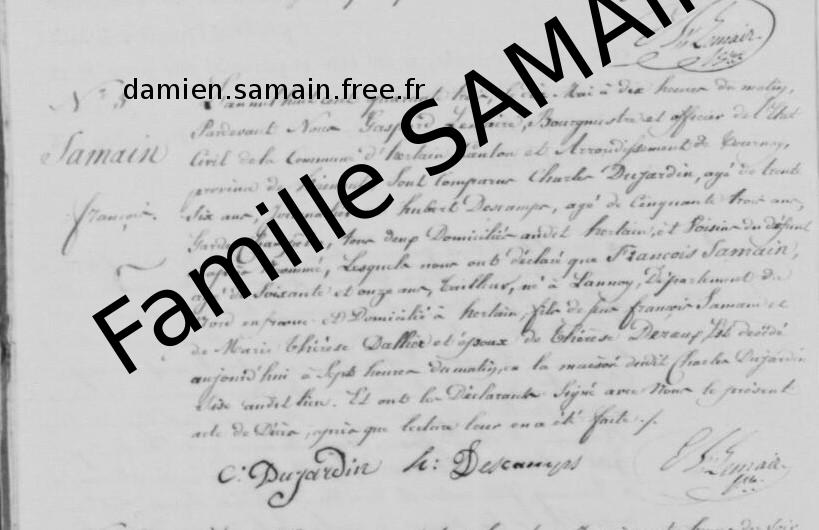 Lemair
N° 5
damien.samain.free.fr
Famille SAMAIN
L'an mil huit cent quarante trois, le dix Mai à dix heures du matin,
Pardevant Nous Gaspard Lemaire, Bourgmestre et officier de l'Etat
Samain
Civil de la Commune d'hertain Canton et Arrondissement de Tournay,
province de hainaut Sont Comparus Charles Dujardin, agé de trente
françois.
Six ans, hubert Descamps, agé de Cinquante trois ans,
Garde Champêtre, tous deux Domiciliés audit hertain, et Voisins du défunt
après nommé, Lesquels nous ont déclaré que François Samain,
agé de Soixante et onze ans, tailleur, né à Lannoy, Département du
Nord en france et Domicilié à hertain, fils de feu françois Samain et
de Marie thérèse et époux de thérèse Est décédé
aujourd'hui à Sept heures du matin, en la maison dudit Charles Dujardin
Sise audit lieu. Et ont les Déclarants Signé avec Nous le présent
acte de Décès, après que lecture leur en a été faite ./.
C: Dujardin h: Descamps Lemair